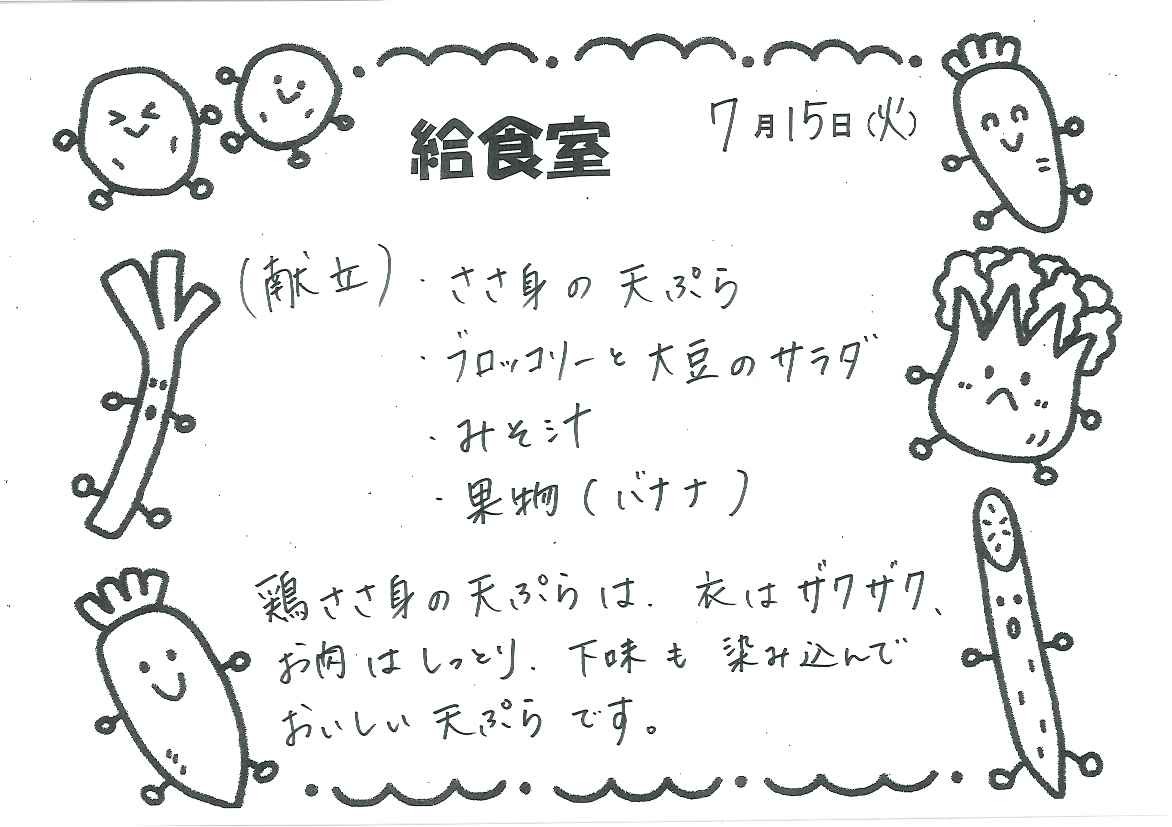 給食室
7月15日(火)
(献立)・ささ身の天ぷら
・ブロッコリーと大豆のサラダ
・みそ汁
・果物(バナナ)
鶏ささ身の天ぷらは、衣はザクザク、
お肉はしっとり、下味も染み込んで
おいしい天ぷらです。